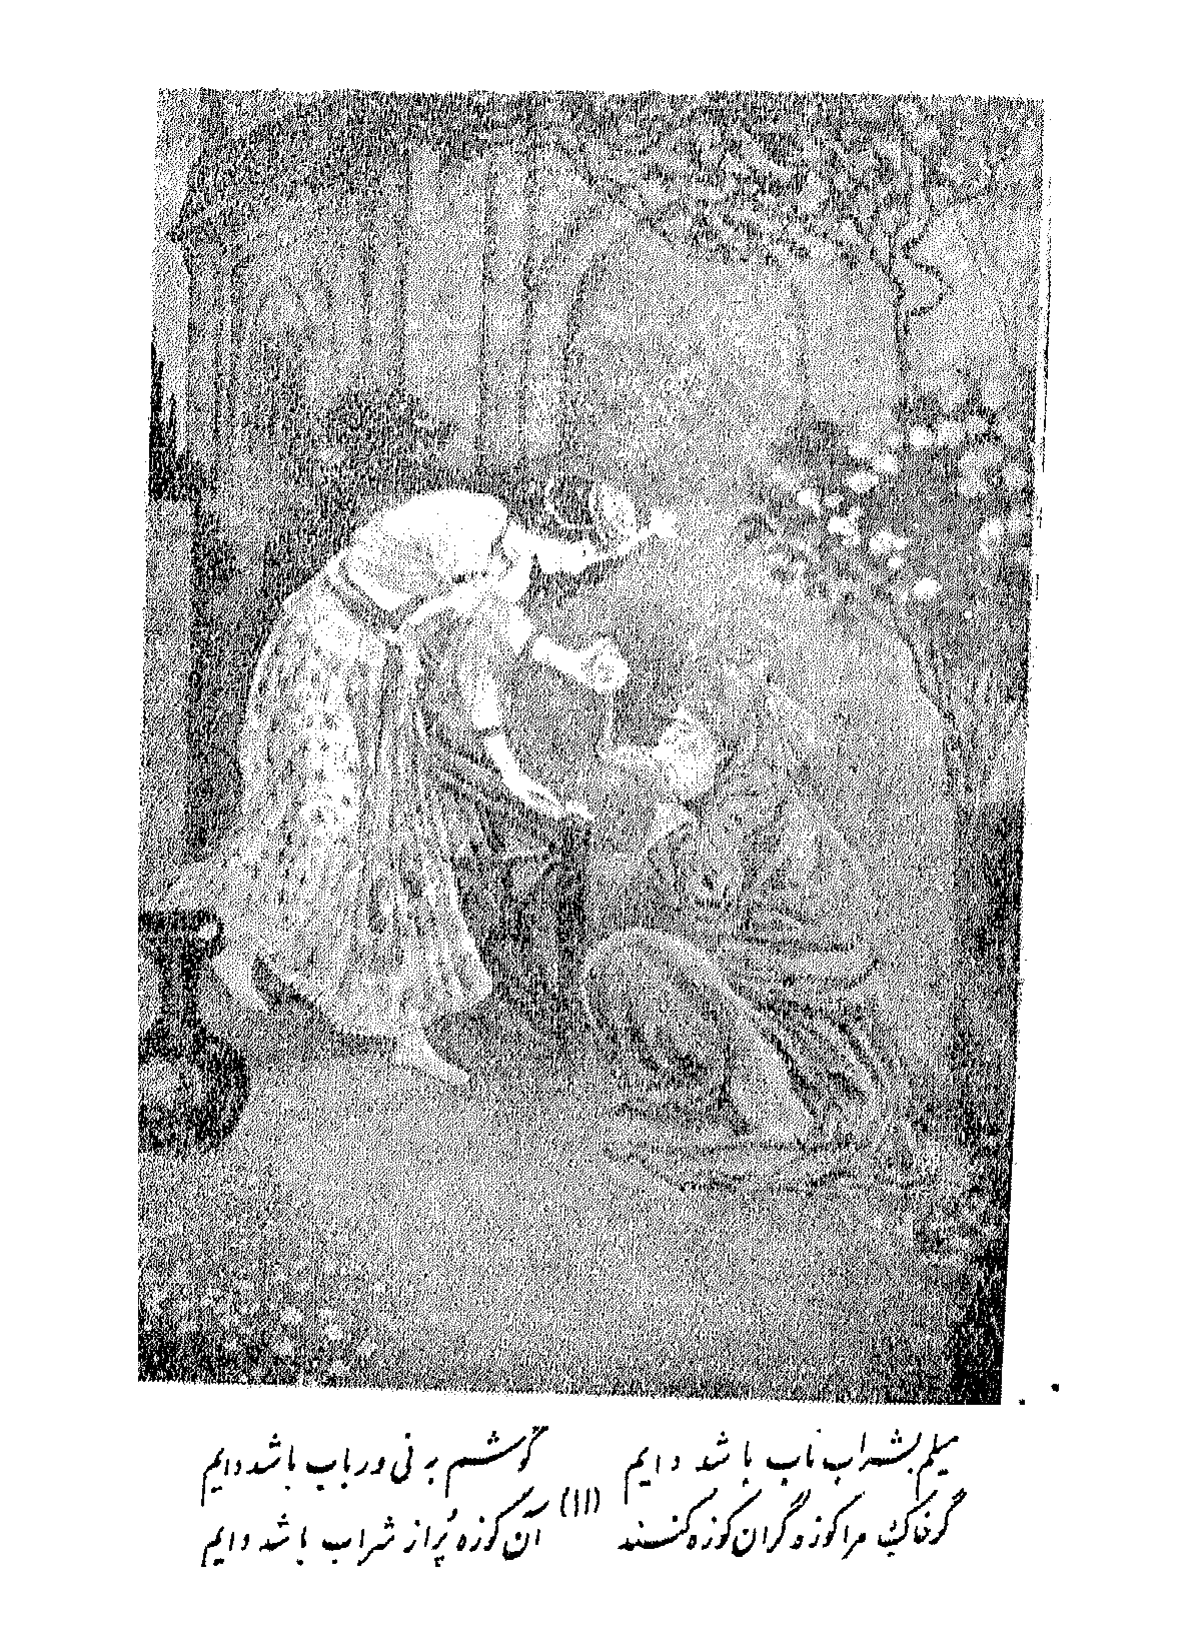 میلم بشراب ناب باشد دایم گوشم بر نی و رباب باشد دایم
(۱۱)
گر خاک مرا کوزه گران کوزه کنند آن کوزه پُر از شراب باشد دایم